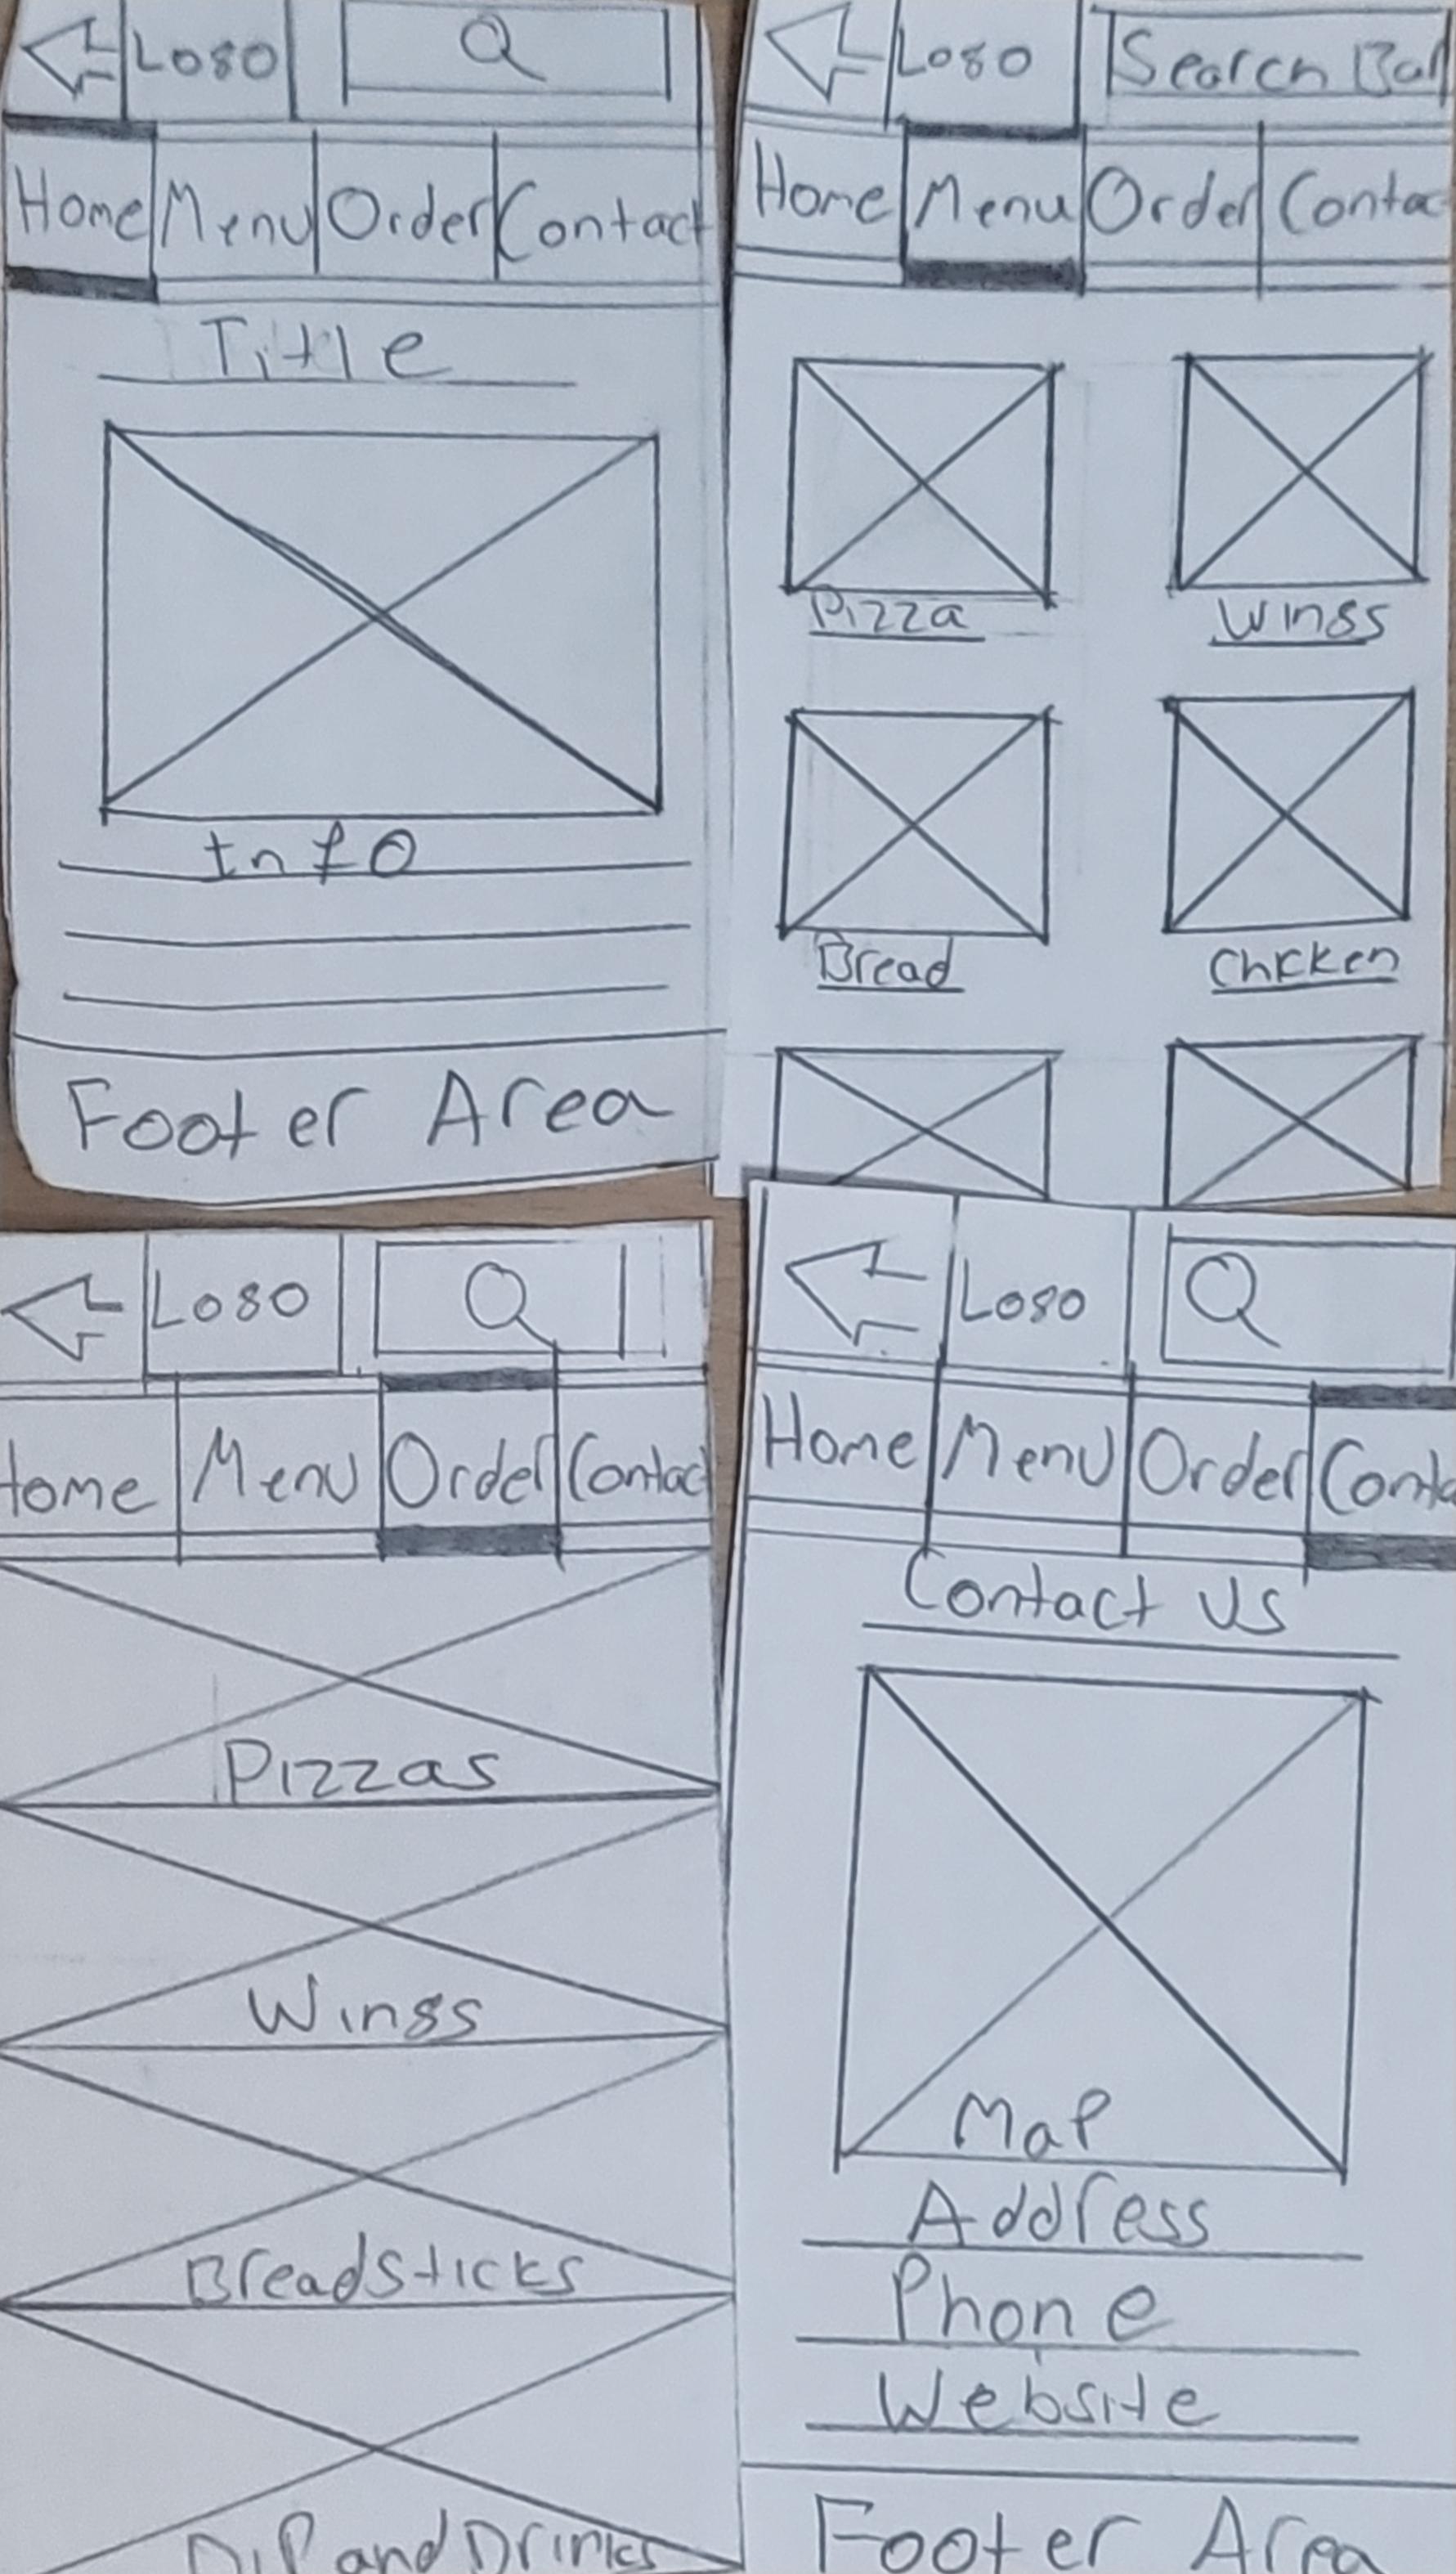 Logo
Home Menu Order Contact
Title
Info
Footer Area
Logo Search Bar
Home Menu Order Contac
Pizza Wings
Bread Chicken
Logo
Home Menu Order Contac
Pizzas
Wings
Breadsticks
Dip and Drinks
Logo
Home Menu Order Conta
Contact Us
Map
Address
Phone
Website
Footer Area